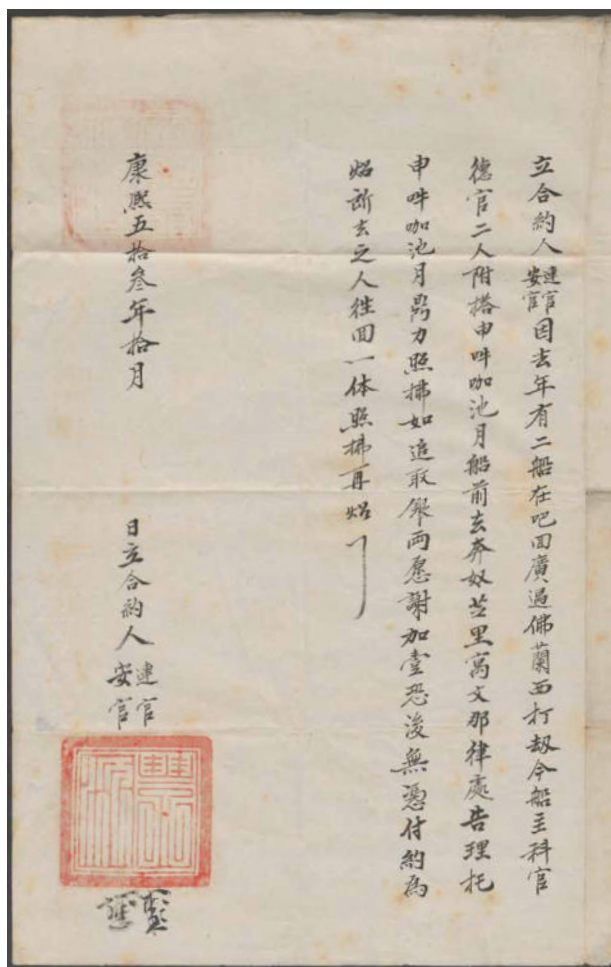 立合約人連官安官因去年有二船在吧回廣過佛蘭西打刼今船主科官
德官二人附搭申吽咖池月船前去奔奴芝里寫文那律處告理托
申吽咖池月鼎力照拂如追取銀両愿謝加壹恐後無憑付約為
炤所去之人徃回一体照拂再炤
康熙五拾叁年拾月 日立合約人連官安官